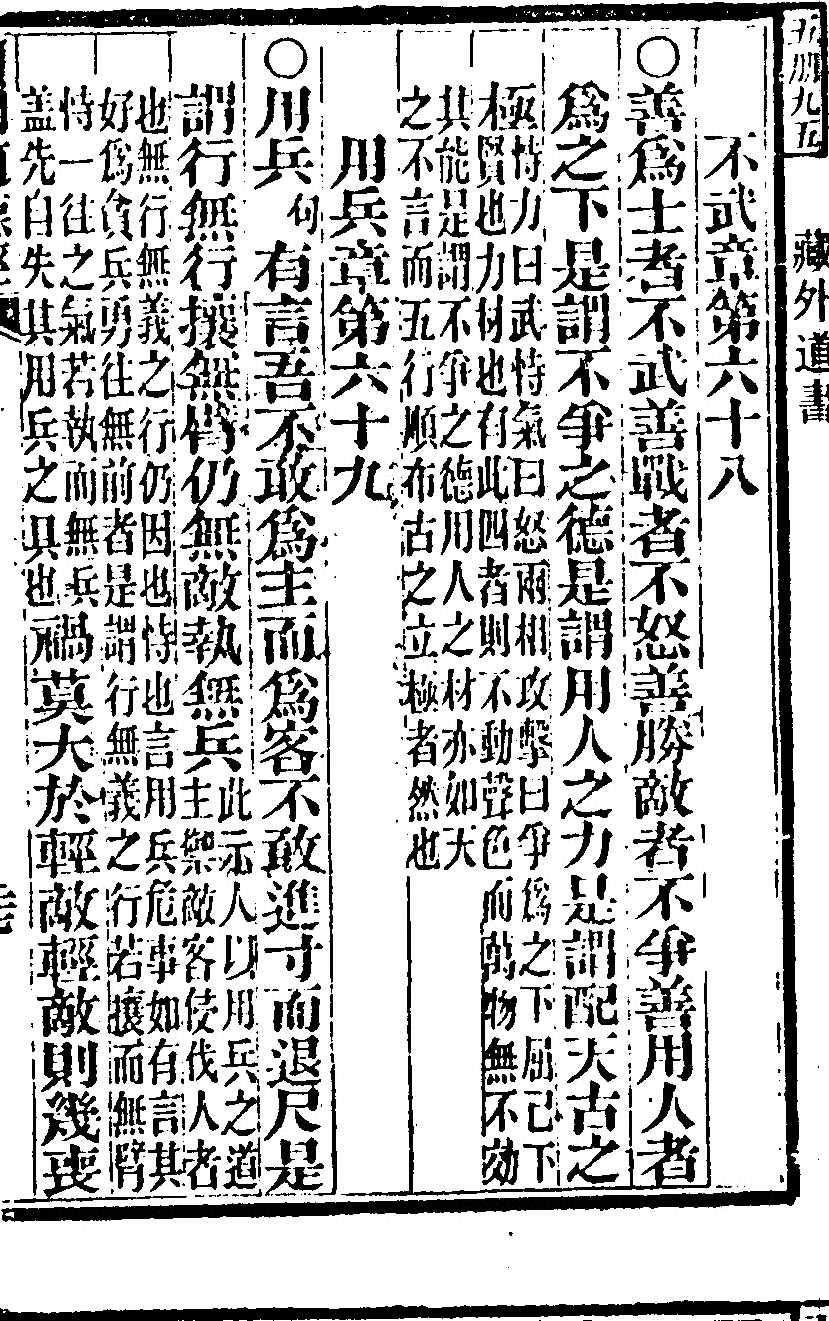 五册九五
藏外道書
不武章第六十八
○善爲士者不武善戰者不怒善勝敵者不爭善用人者
爲之下是謂不爭之德是謂用人之力是謂配天古之
極恃力曰武恃氣曰怒兩相攻擊曰爭爲之下屈己下
賢也力材也有此四者則不動聲色而萬物無不効
其能是謂不爭之德用人之材亦如大
之不言而五行順布古之立極者然也
用兵章第六十九
○用兵何有言吾不敢爲主而爲客不敢進寸而退尺是
謂行無行攘無臂仍無敵執無兵此示人以用兵之道
主禦敵客侵伐人者
也無行無義之行仍因也恃也言用兵危事如有言其
好爲貪兵勇往無前者是謂行無義之行若攘而無臂
恃一往之氣若執而無兵
盖先自失其用兵之具也禍莫大於輕敵輕敵則幾喪